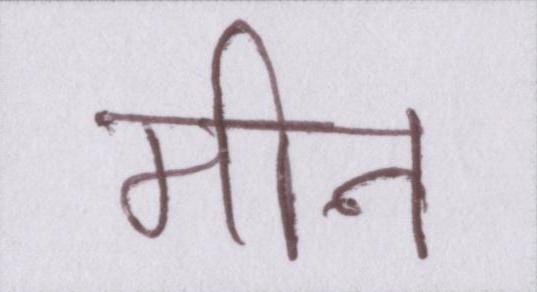 मीन